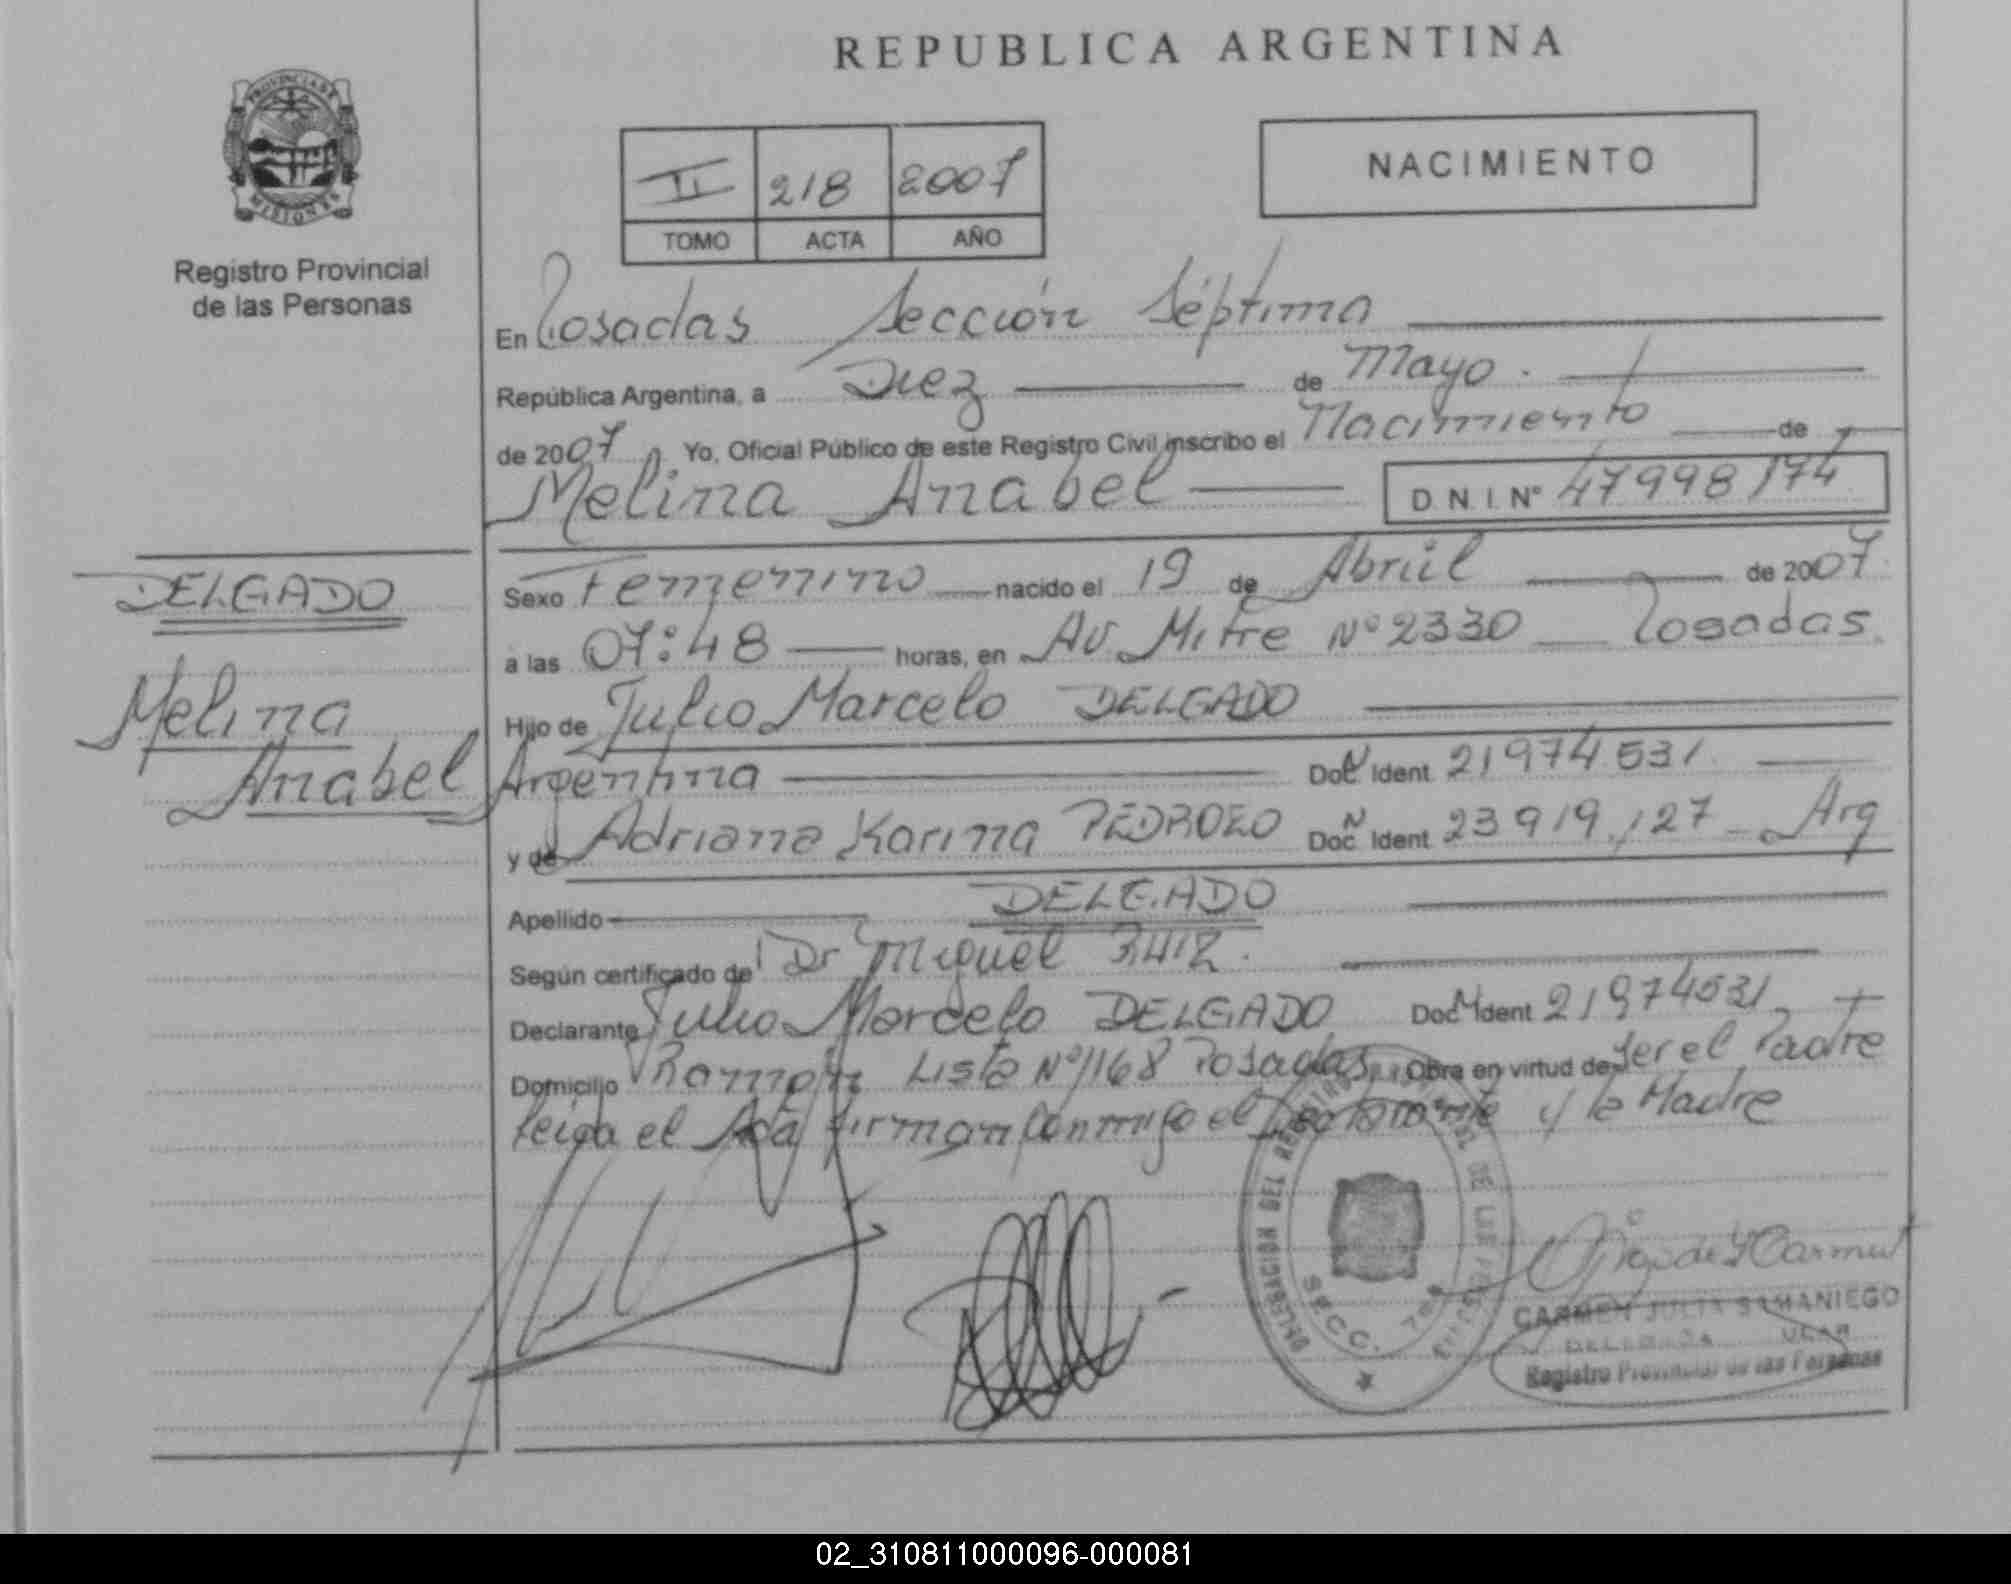 REPUBLICA ARGENTINA
PROVINCIA DE
MISIONES
Registro Provincial
de las Personas
II 218 2007
TOMO ACTA AÑO
NACIMIENTO
En Posadas Sección Séptima
República Argentina, a Diez de Mayo
de 2007 Yo, Oficial Público de este Registro Civil inscribo el Nacimiento de
Melina Anabel D.N.I. N° 47998174
DELGADO
Melina
Anabel
Sexo Femenino nacido el 19 de Abril de 2007
a las 07:48 horas, en Av. Mitre N° 2330 Posadas
Hijo de Julio Marcelo DELGADO
Argentina Doc Ident 21974531
y de Adriana Karina PEDROZO Doc Ident 23919127 Arg
Apellido DELGADO
Según certificado de Dr Miguel
Declarante Julio Marcelo DELGADO Doc Ident 21974531
Domicilio Ramón Lista N° 1168 Posadas Obra en virtud de Ser el Padre
leída el Acta firman conmigo el Declarante y la Madre
DELEGACION DEL REGISTRO DE LAS PERSONAS
SECC. 7ma
CARMEN JULIA SAMANIEGO
DELEGADA
Registro Provincial de las Personas
02_310811000096-000081